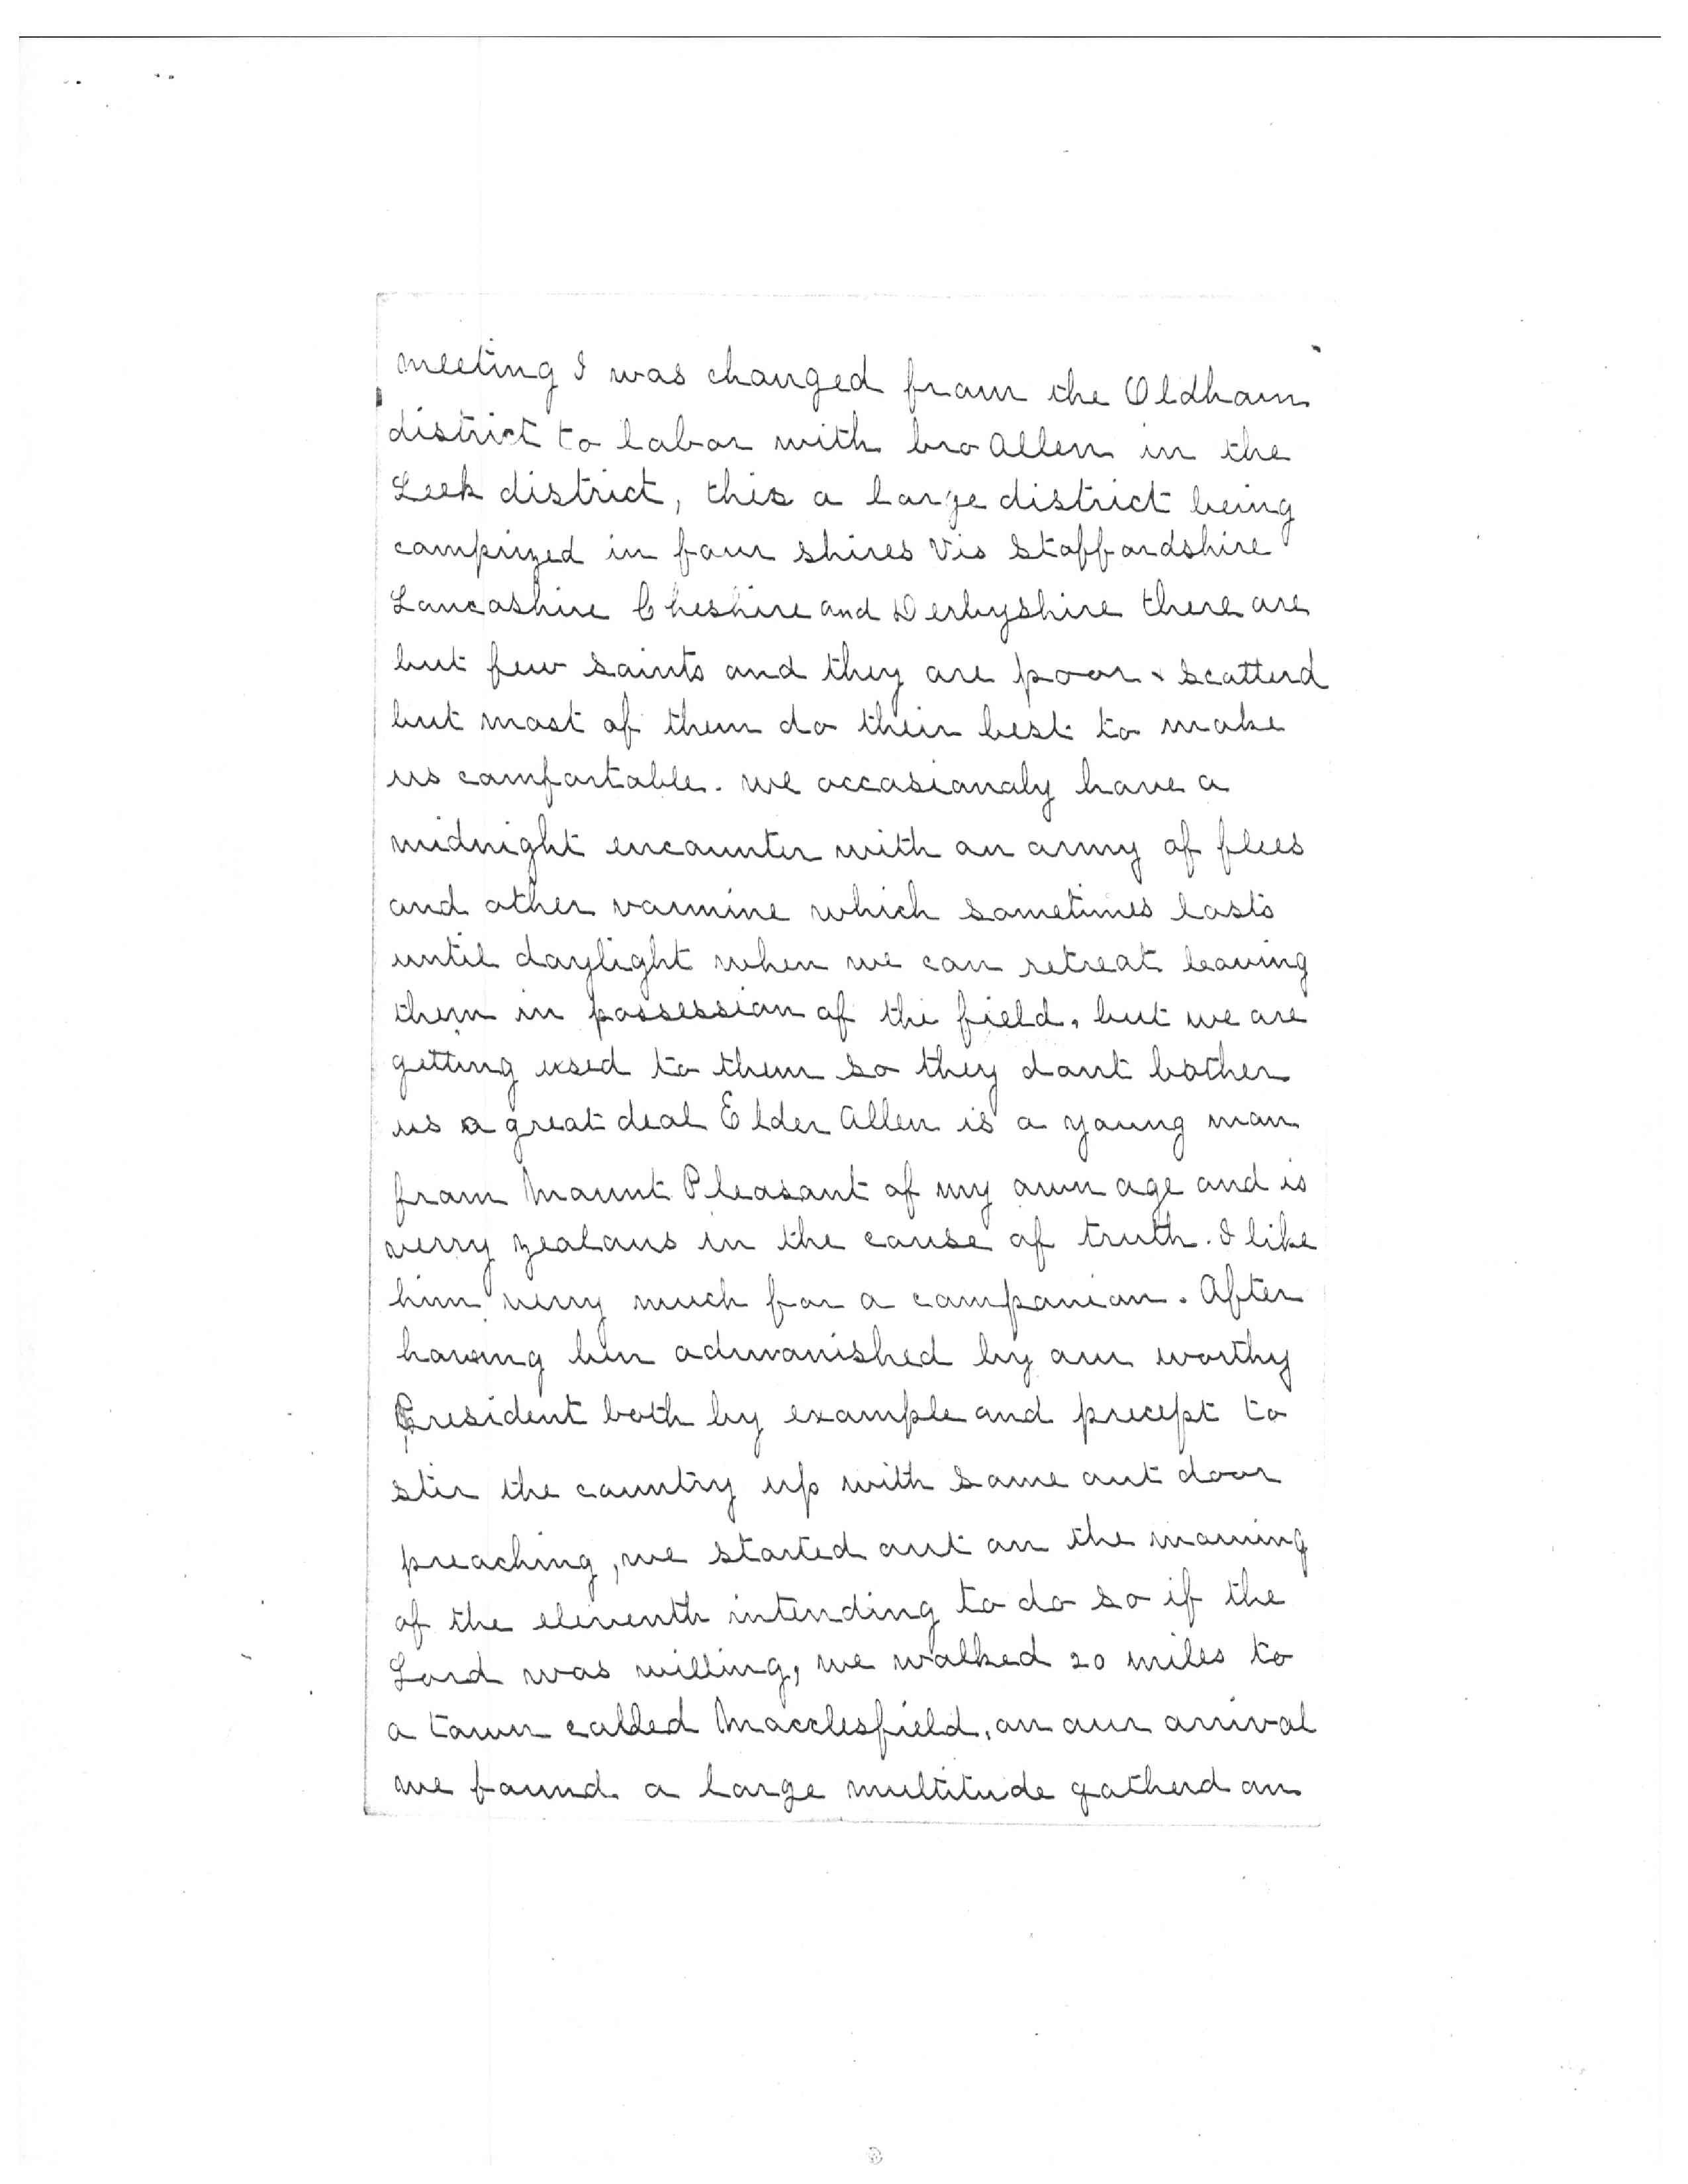 meeting I was changed from the Oldham
district to labor with bro Allen in the
Leek district, this a large district being
comprized in four shires Vis Staffordshire
Lancashire Cheshire and Derbyshire there are
but few saints and they are poor & scatterd
but most of them do their best to make
us comfortable. we occasionaly have a
midnight encounter with an army of flees
and other varmine which sometimes lasts
until daylight when we can retreat leaving
them in possession of the field, but we are
getting used to them so they dont bother
us a great deal Elder Allen is a young man
from Mount Pleasant of my own age and is
verry zealous in the cause of truth. I like
him verry much for a companion. After
having bin admonished by our worthy
President both by example and precept to
stir the country up with some out door
preaching, we started out on the morning
of the eleventh intending to do so if the
Lord was willing, we walked 20 miles to
a town called Macclesfield, on our arrival
we found a large multitude gatherd on